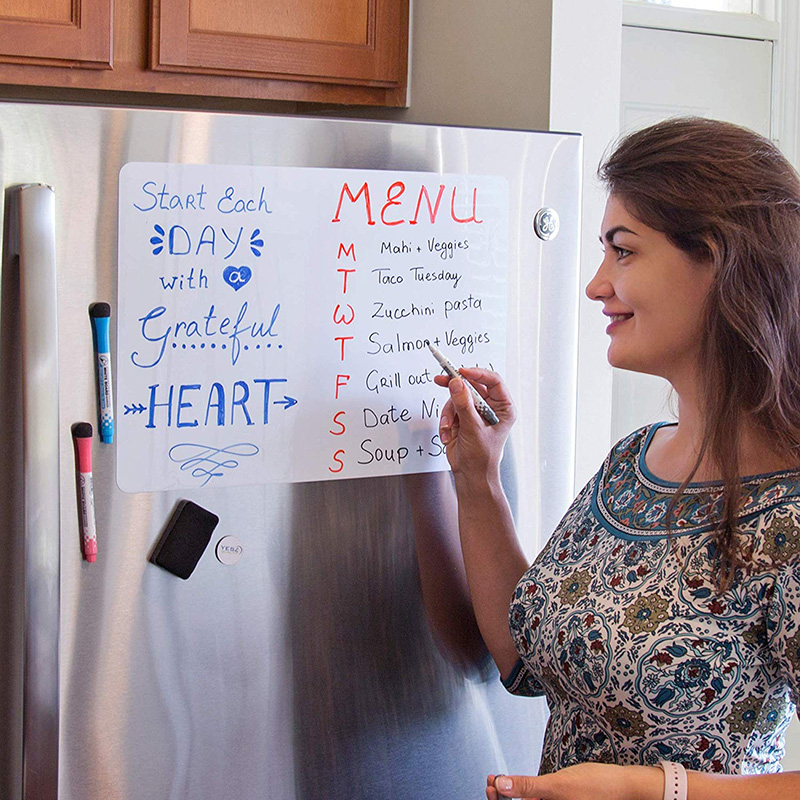 Start Each
DAY
with a
Grateful
HEART
MENU
M Mahi + Veggies
T Taco Tuesday
W Zucchini pasta
T Salmon + Veggies
F Grill out
S Date
S Soup +
GE
YEBA